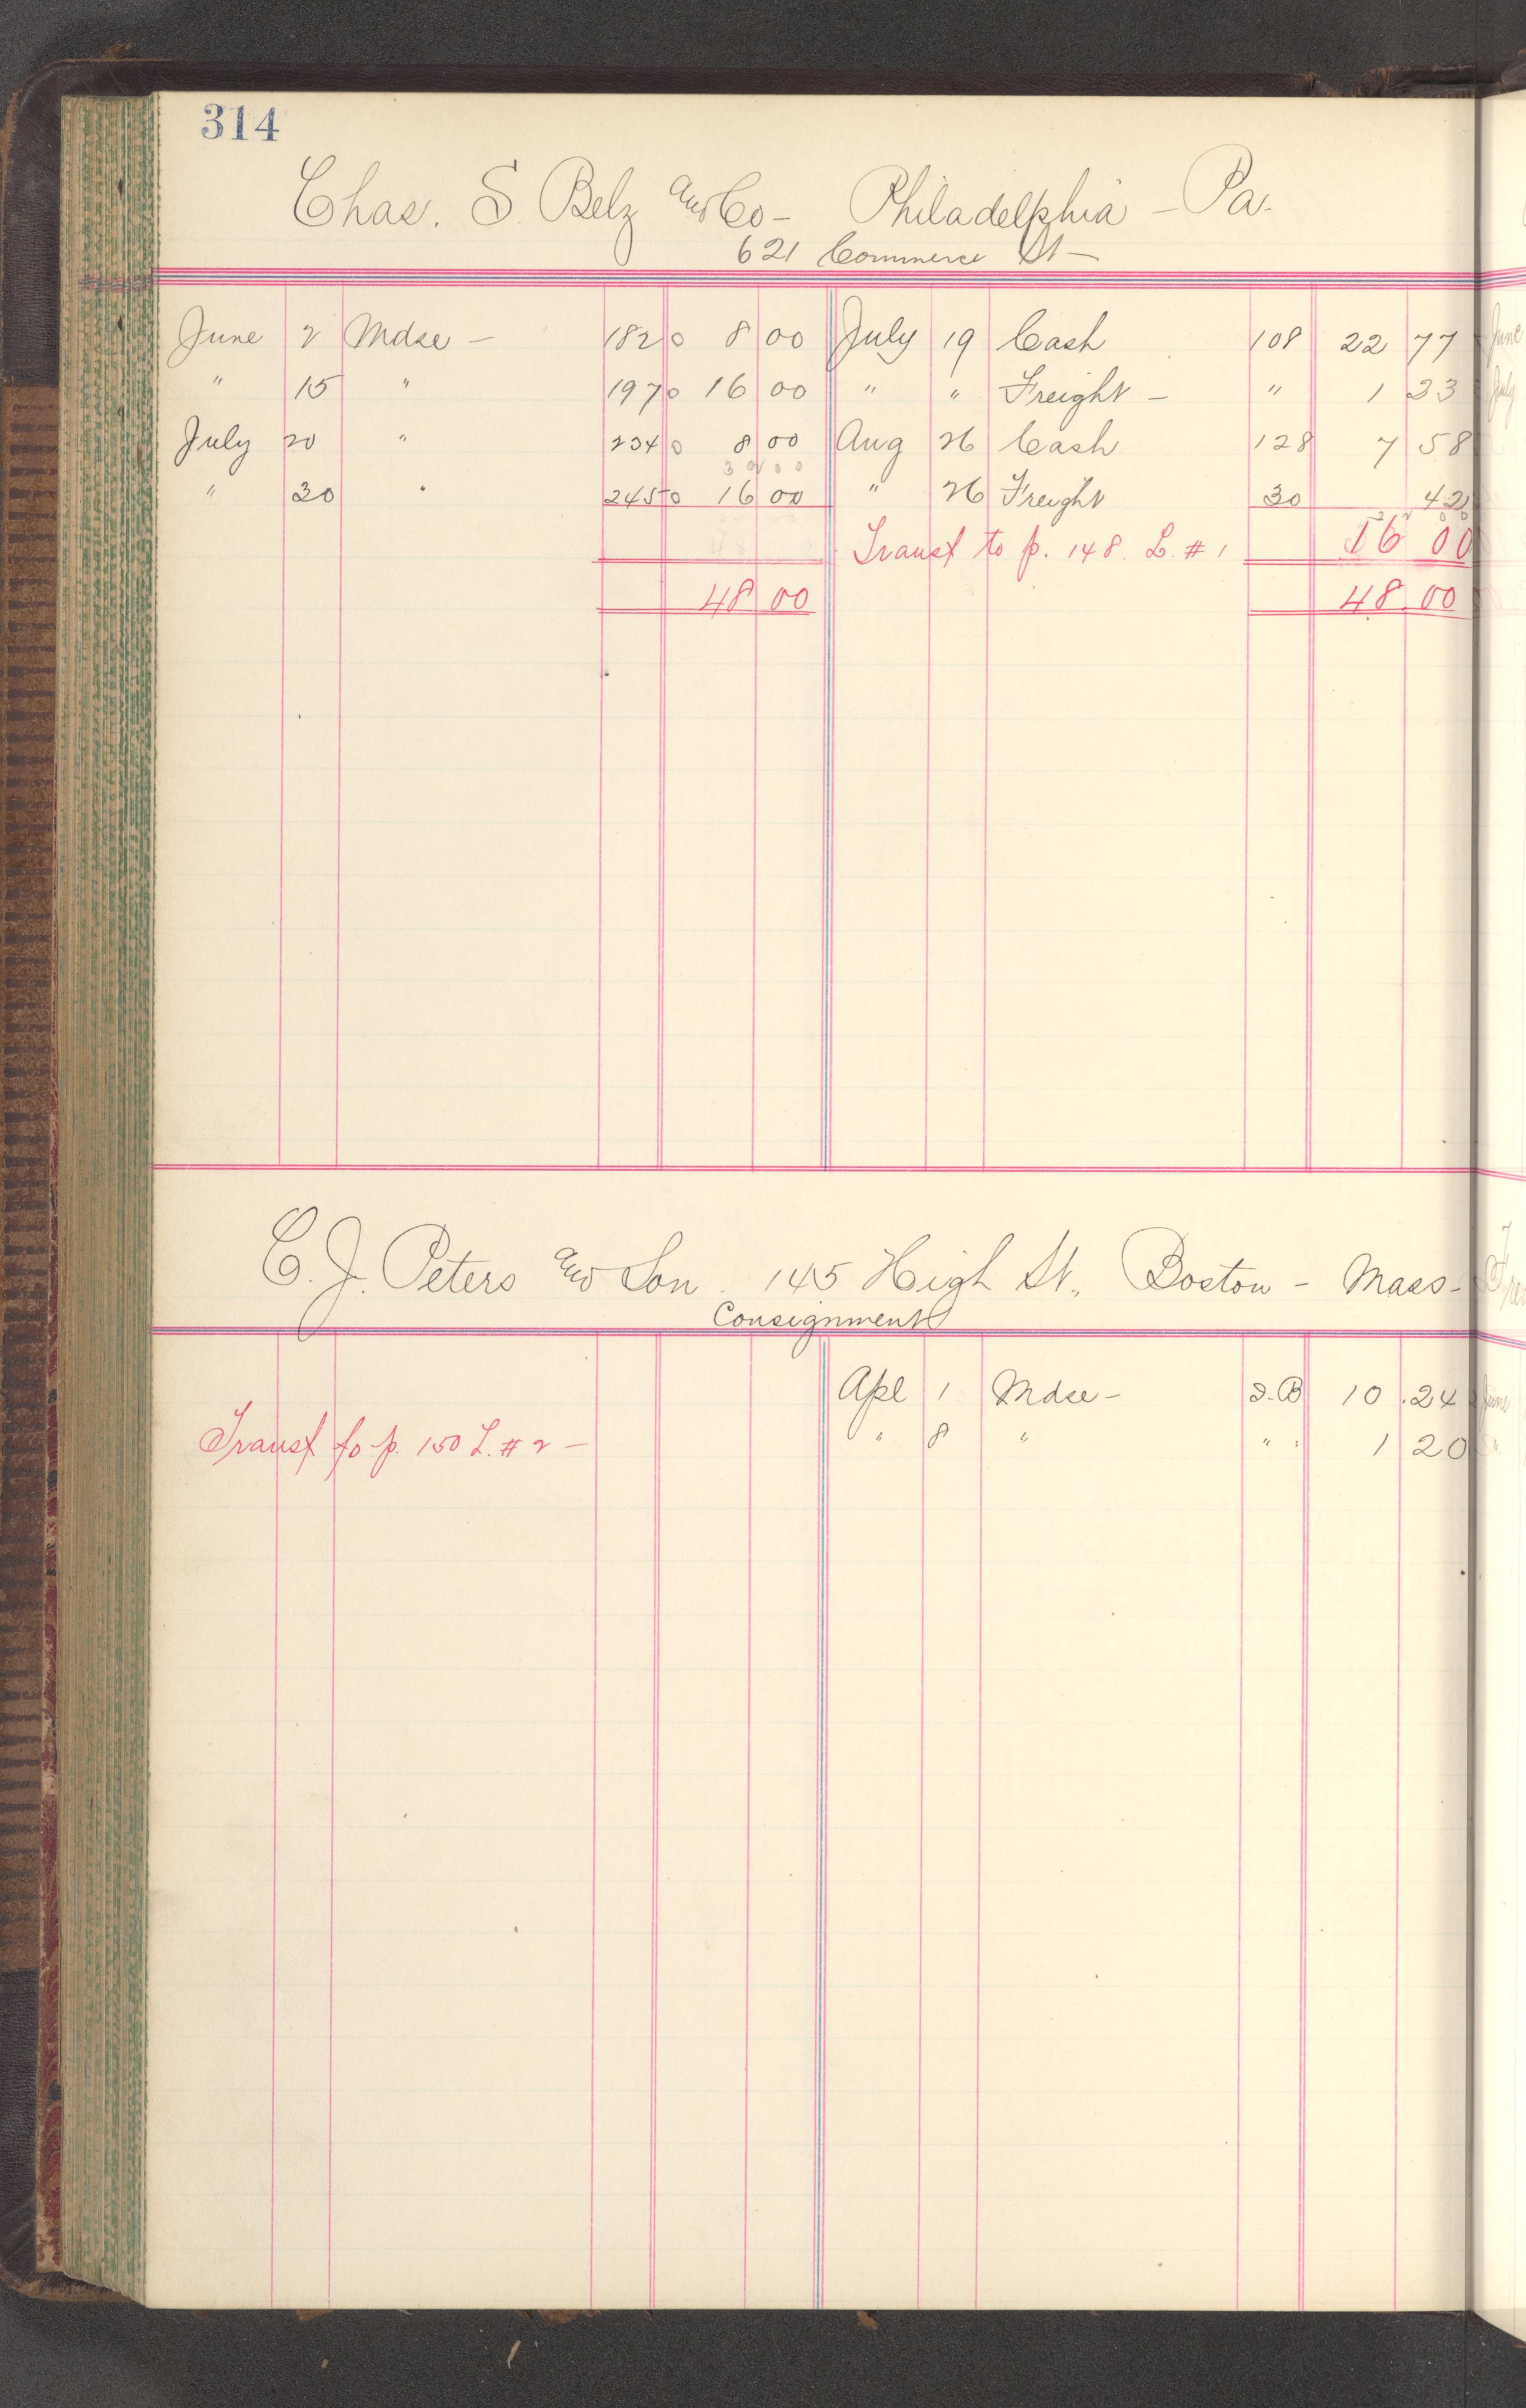 314
Chas. S. Belz and Co - Philadelphia - Pa.
621 Commerce St -
June 2 Mdse - 182 0 8 00 July 19 Cash 108 22 77
" 15 " 197 0 16 00 " " Freight - " 1 23
July 20 " 234 0 8 00 Aug 26 Cash 128 7 58
32 00
" 30 " 245 0 16 00 " 26 Freight 30 42
Transf to p. 148. L. # 1 16 00
48 00 48.00
C. J. Peters and Son. 145 High St., Boston - Mass -
Consignment
Apl 1 Mdse - J.B 10 .24
Transf to p. 150 L. # 2 - " 8 " " " 1 20